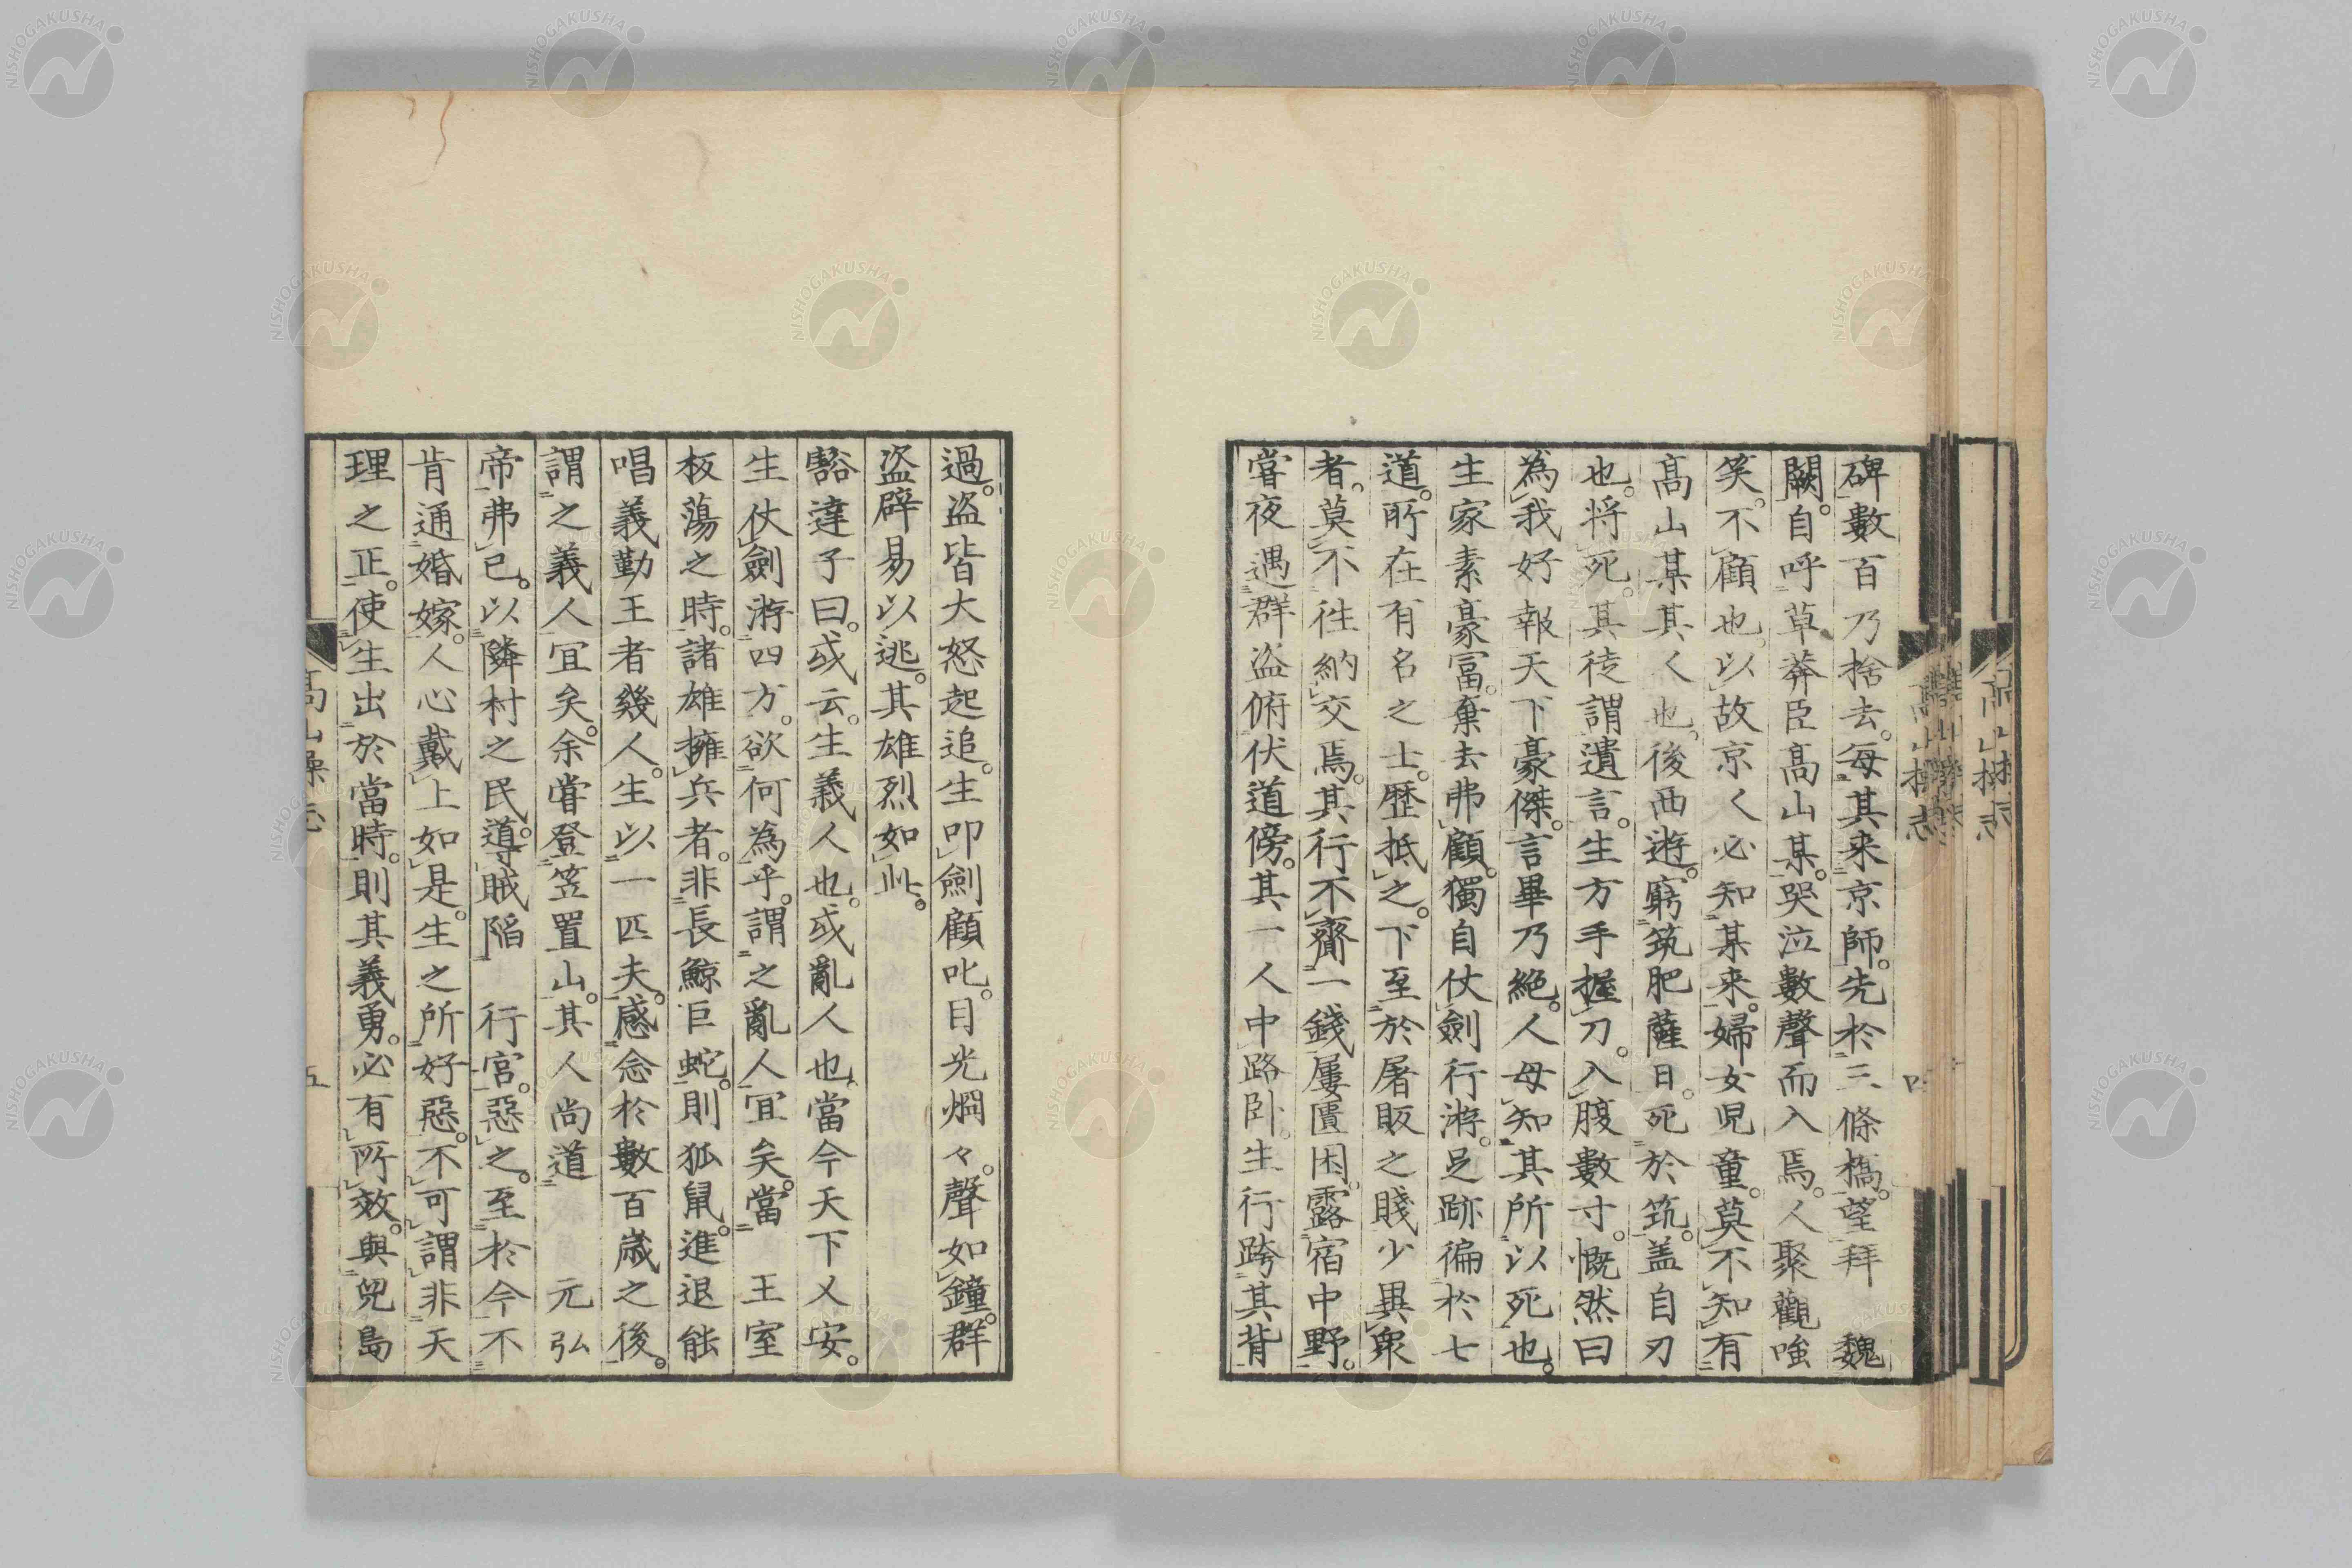 碑數百乃捨去。每其来京師。先於三條橋。望拜　魏
闕。自呼草莽臣髙山某。哭泣數聲而入焉。人聚觀嗤
笑。不顧也。以故京人必知某来。婦女児童。莫不知有
髙山某其人也。後西遊。窮筑肥薩日。死於筑。盖自刃
也。将死。其徒謂遺言。生方手握刀。入腹數寸。慨然曰
為我好報天下豪傑。言畢乃絶。人毋知其所以死也。
生家素豪冨。棄去弗顧。獨自仗劍行游。足跡徧於七
道。所在有名之士。歴抵之。下至於屠販之賤少異衆
者。莫不徃納交焉。其行不齎一錢。屢匱困。露宿中野。
甞夜遇群盗俯伏道傍。其一人中路卧。生行跨其背
過。盗皆大怒起追。生叩劍顧叱。目光烱々。聲如鐘。群
盗辟易以逃。其雄烈如此。
豁達子曰。或云。生義人也。或亂人也。當今天下乂安。
生仗劍游四方。欲何為乎。謂之亂人冝矣。當　王室
板蕩之時。諸雄擁兵者。非長鯨巨蛇。則狐鼠進退能
唱義勤王者幾人。生以一匹夫。感念於數百歳之後。
謂之義人冝矣。余甞登笠置山。其人尚道　元弘
帝弗已。以隣村之民。導賊陷　行宮。惡之。至於今不
肯通婚嫁。人心戴上如是。生之所好惡。不可謂非天
理之正。使生出於當時。則其義勇。必有所效。與兒島
髙山操志
五
髙山操志
四
NISHOGAKUSHA